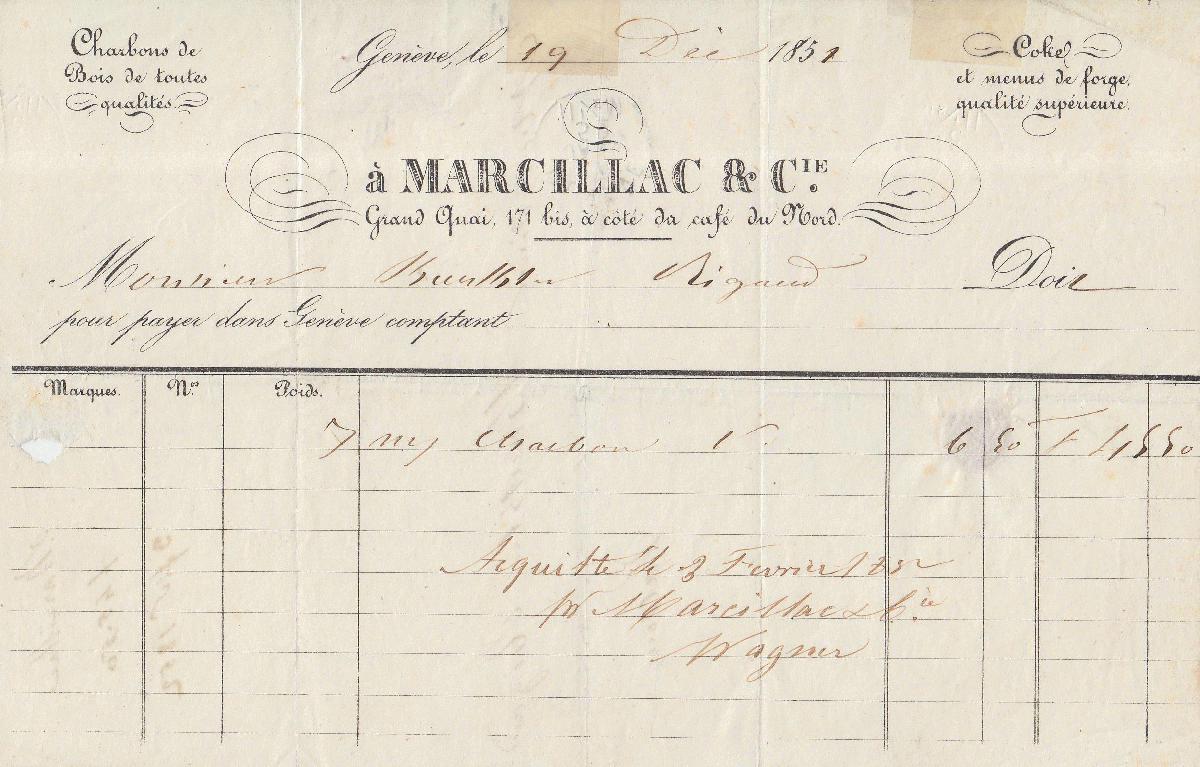 Charbons de
Bois de toutes
qualités
Genève, le 19 Déc 1851
Coke
et menus de forge,
qualité supérieure.
à MARCILLAC & CIE.
Grand Quai, 171 bis, à côté du café du Nord.
Monsieur Rigaud Doit
pour payer dans Genève comptant
Marques. Nos. Poids.
7 Charbon 6 50 F 45 50
Acquitté le 3 Fevrier 1852
pr Marcillac & Cie
Wagner